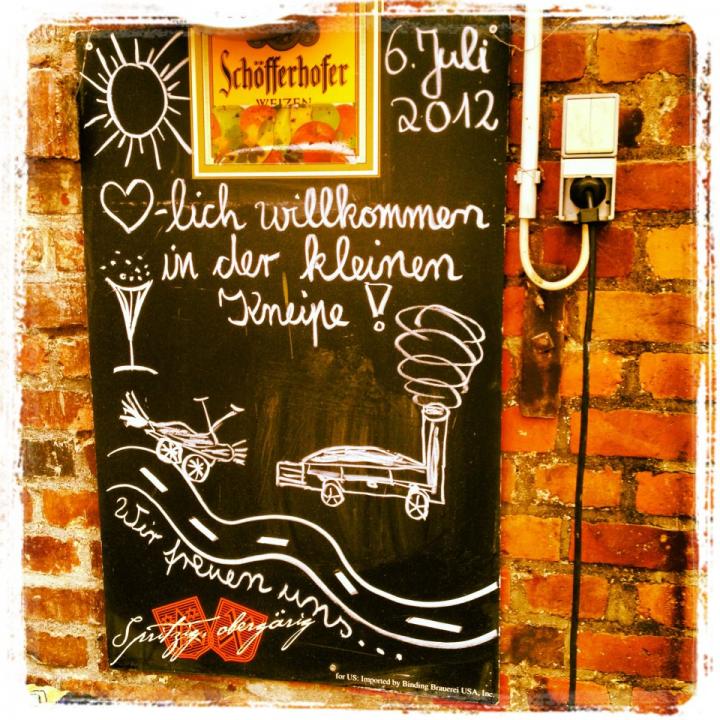 Schöfferhofer
WEIZEN
6. Juli
2012
♡-lich willkommen
in der kleinen
Kneipe!
Wir freuen uns...
Spritzig, obergärig
for US: Imported by Binding Brauerei USA, Inc.